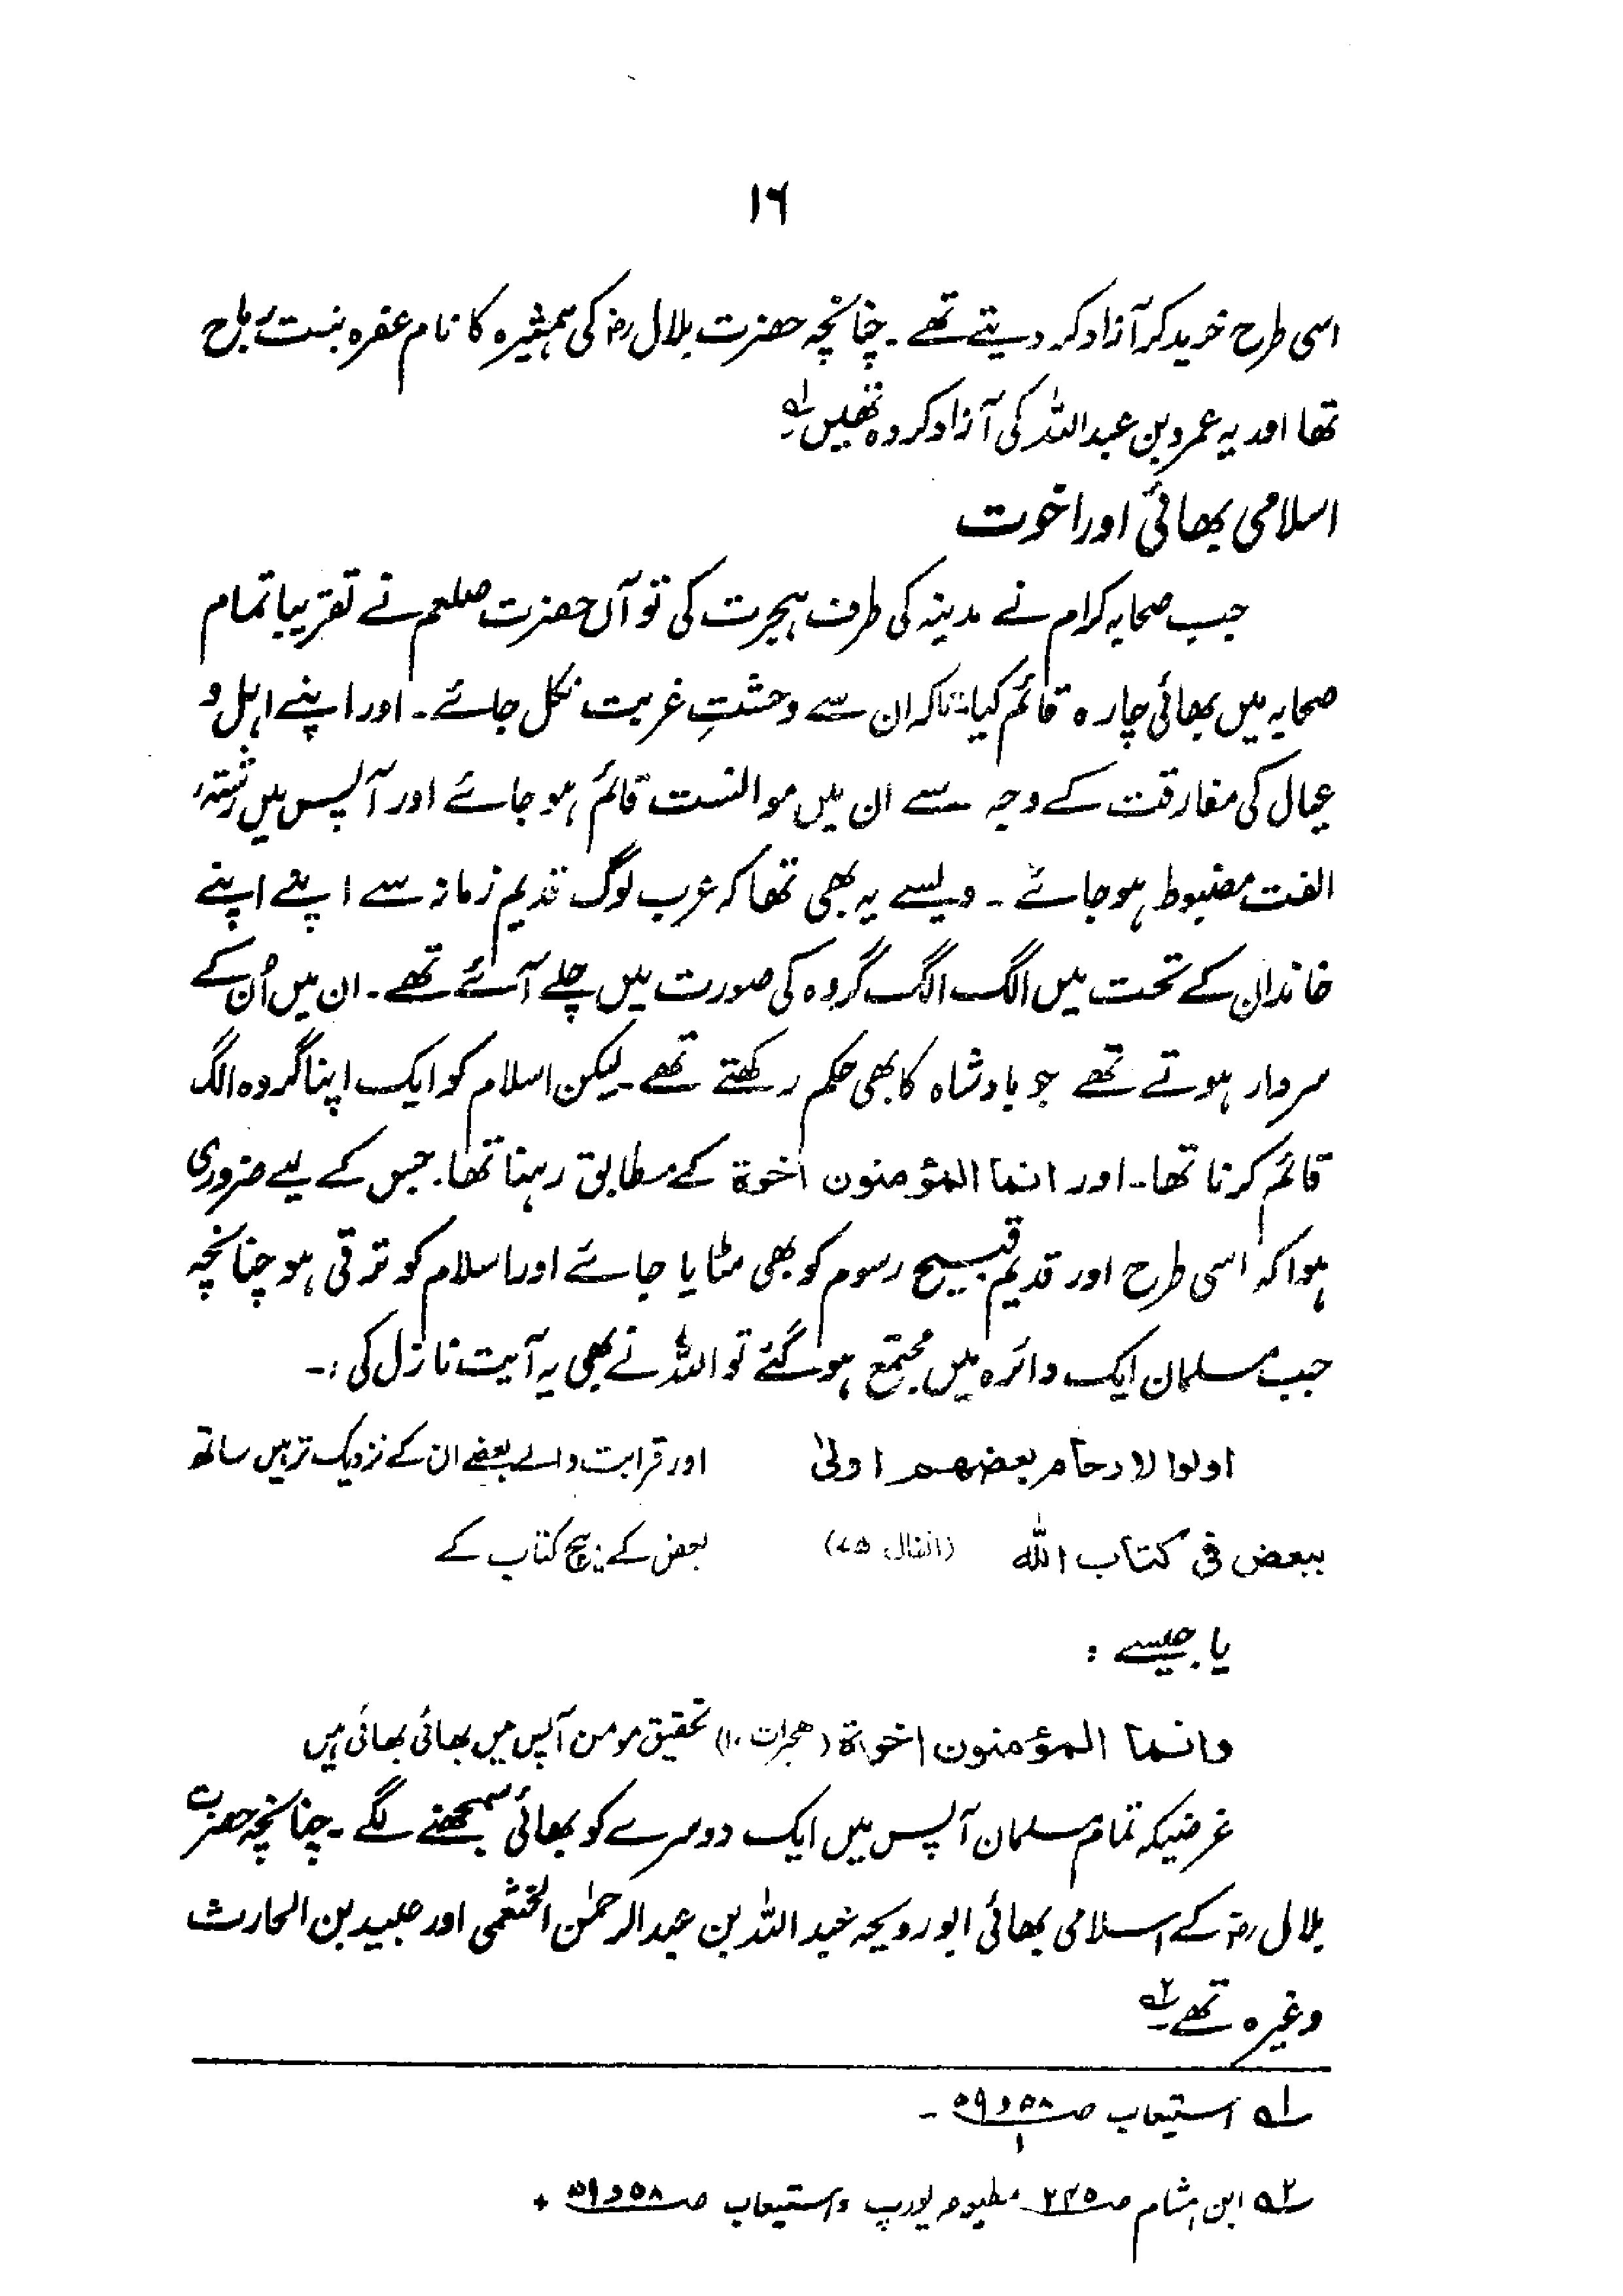 ۱۶
اسی طرح خرید کر آزاد کر دیتے تھے ۔ چنانچہ حضرت بلال رضؓ کی ہمشیرہ کا نام عفرہ بنت رباح
تھا اور یہ عمرو بن عبداللہ کی آزاد کردہ تھیں ؂۱
اسلامی بھائی اور اخوت
جب صحابہ کرام نے مدینہ کی طرف ہجرت کی تو آں حضرت صلعم نے تقریبا تمام
صحابہ میں بھائی چارہ قائم کیا تاکہ ان سے وحشتِ غربت نکل جائے ۔ اور اپنے اہل و
عیال کی مفارقت کے وجہ سے ان میں موانست قائم ہو جائے اور آپس میں رشتہٴ
الفت مضبوط ہو جائے ۔ ویسے یہ بھی تھا کہ عرب لوگ قدیم زمانہ سے اپنے اپنے
خاندان کے تحت میں الگ الگ گروہ کی صورت میں چلے آئے تھے ۔ ان میں اُن کے
سردار ہوتے تھے جو بادشاہ کا بھی حکم رکھتے تھے ۔ لیکن اسلام کو ایک اپنا گروہ الگ
قائم کرنا تھا ۔ اور انما المؤمنون اخوة کے مطابق رہنا تھا . جس کے لیے ضروری
ہوا کہ اسی طرح اور قدیم قبیح رسوم کو بھی مٹایا جائے اور اسلام کو ترقی ہو چنانچہ
جب مسلمان ایک دائرہ میں مجتمع ہو گئے تو اللہ نے بھی یہ آیت نازل کی :۔
اولوا لارحام بعضهم اولیٰ اور قرابت والے بعضے ان کے نزدیک تر ہیں ساتھ
ببعض فی کتاب اللہ (انفال ۷۵) بعض کے بیچ کتاب کے
یا جیسے :
وانما المؤمنون اخوة (حجرات ۱۰) تحقیق مومن آپس میں بھائی بھائی ہیں
غرضیکہ تمام مسلمان آپس میں ایک دوسرے کو بھائی سمجھنے لگے ۔ چنانچہ حضرت
بلال رضؓ کے اسلامی بھائی ابو رویحہ عبد اللہ بن عبدالرحمٰن الخثعمی اور عبید بن الحارث
وغیرہ تھے ؂۲
؂۱ استیعاب صـ ۵۸ و ۵۹ / ۱ ۔
؂۲ ابن ہشام صـ ۲۳۵ مطبوعہ یورپ و استیعاب صـ ۵۸ و ۵۹ +